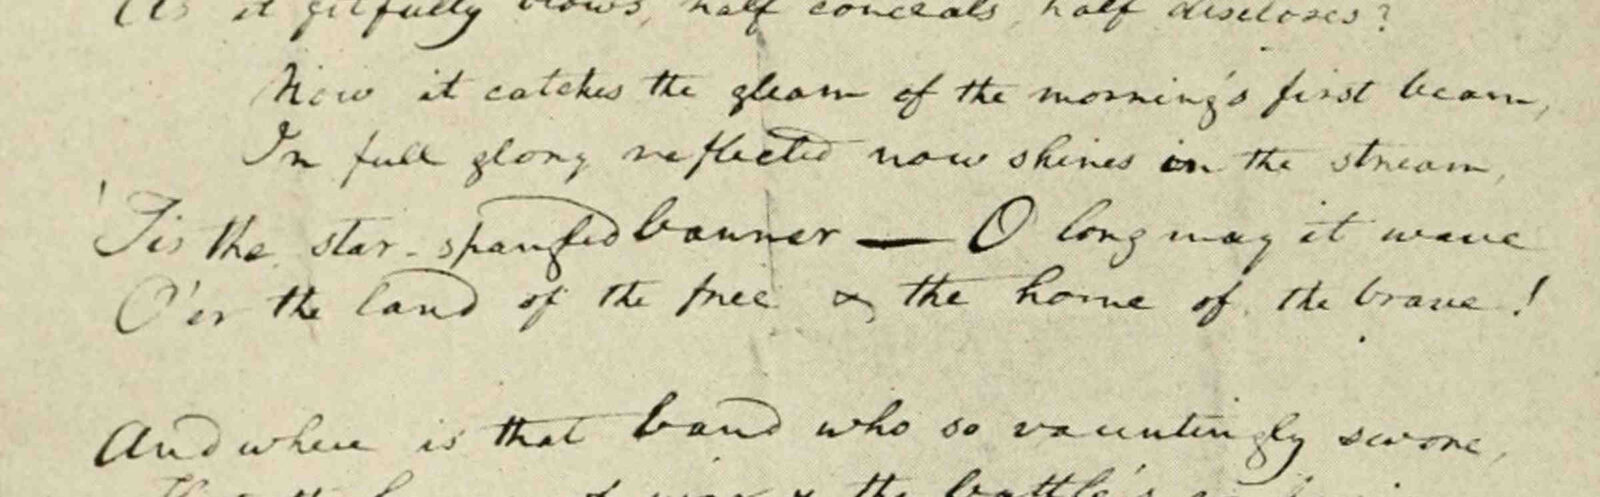 As it fitfully blows, half conceals, half discloses?
Now it catches the gleam of the morning's first beam,
In full glory reflected now shines in the stream,
'Tis the star-spangled banner — O long may it wave
O'er the land of the free & the home of the brave!
And where is that band who so vauntingly swore,
of war & the battle's